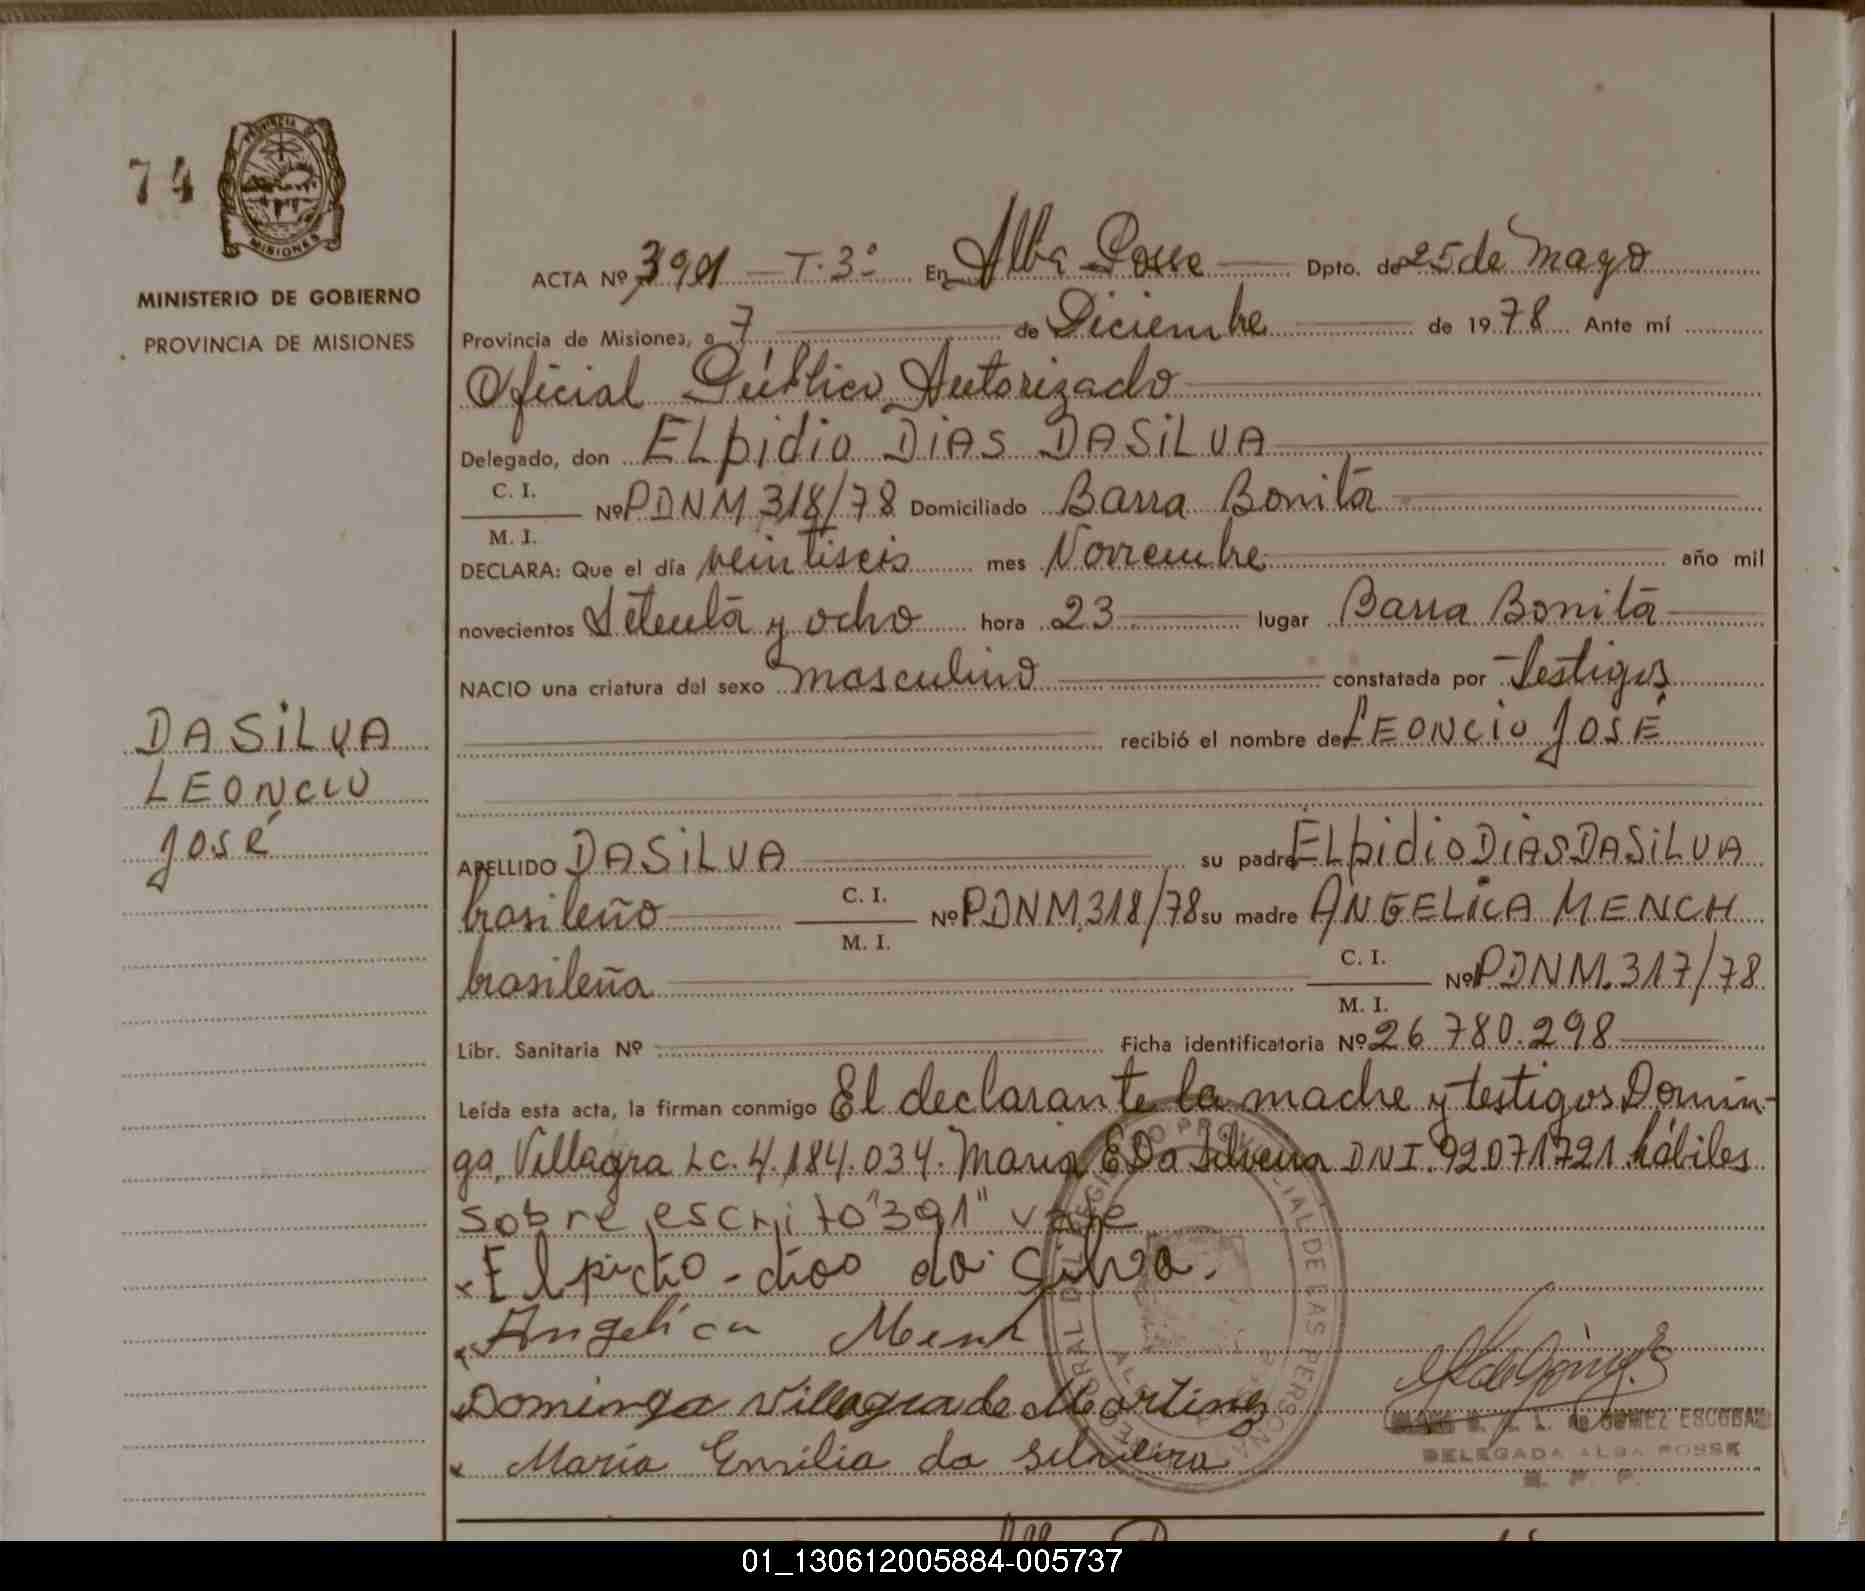 74
PROVINCIA DE
MISIONES
MINISTERIO DE GOBIERNO
PROVINCIA DE MISIONES
DASILVA
LEONCIO
José
ACTA Nº 391 — T. 3º En Alba Posse Dpto. de 25 de Mayo
Provincia de Misiones, a 7 de Diciembre de 1978 Ante mí
Oficial Público Autorizado
Delegado, don ELpidio DiAS DASiLVA
C. I.
M. I.
Nº PDNM 318/78 Domiciliado Barra Bonita
DECLARA: Que el día veintiseis mes Noviembre año mil
novecientos Setenta y ocho hora 23 lugar Barra Bonita
NACIO una criatura del sexo masculino constatada por Testigos
recibió el nombre de LEONCIO JOSÉ
APELLIDO DASiLVA su padre ELpidio DiAS DASiLVA
brasileño C. I. M. I. Nº PDNM.318/78 su madre ANGELiCA MENCH
brasileña C. I. M. I. Nº PDNM.317/78
Libr. Sanitaria Nº Ficha identificatoria Nº 26 780.298
Leída esta acta, la firman conmigo El declarante la madre y testigos Domin-
ga, Villagra Lc. 4.184.034. Maria E Da Silveira DNI. 92071721 hábiles
sobre escrito "391" vale
Elpidio - dias da Silva.
Angélica Mench
Dominga Villagra de Martinez
Maria Emilia da Silveira
GOMEZ ESCOBAR
DELEGADA ALBA POSSE
01_130612005884-005737